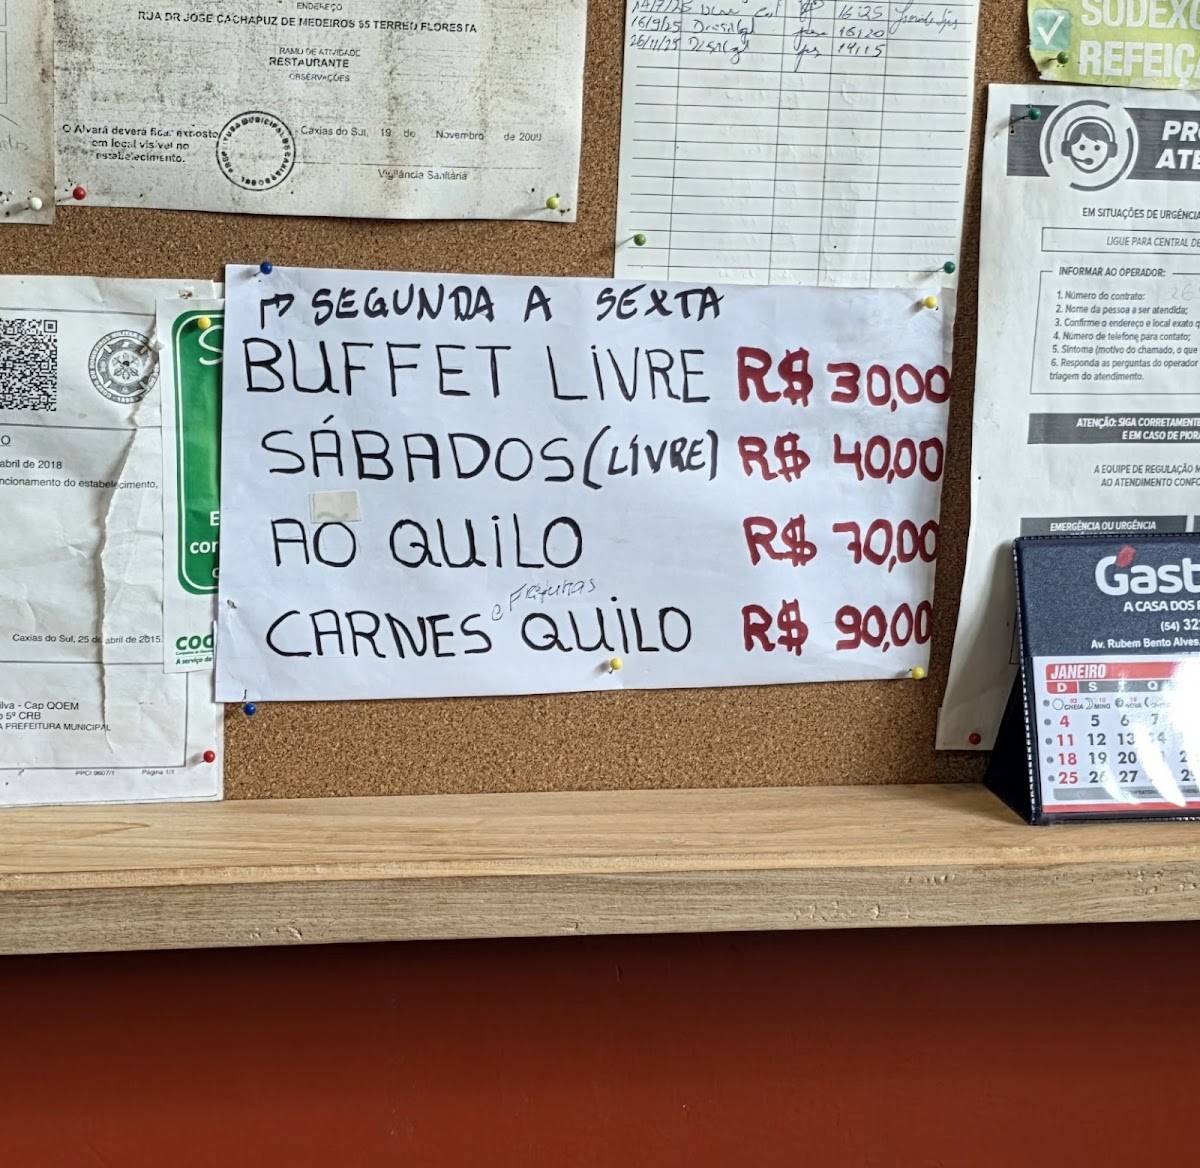 ENDEREÇO
RUA DR JOSE CACHAPUZ DE MEDEIROS 55 TERREO FLORESTA
RAMO DE ATIVIDADE
RESTAURANTE
OBSERVAÇÕES
O Alvará deverá ficar exposto
em local visível no
estabelecimento.
Caxias do Sul, 19 de Novembro de 2009
Vigilância Sanitária
16:25
16/9/25 16:20
26/11/25 14:15
SODEXO
REFEIÇ
PR
ATE
EM SITUAÇÕES DE URGÊNCIA
LIGUE PARA CENTRAL DE
INFORMAR AO OPERADOR:
1. Número do contrato:
2. Nome da pessoa a ser atendida;
3. Confirme o endereço e local exato
4. Número de telefone para contato;
5. Sintoma (motivo do chamado, o que
6. Responda as perguntas do operador
triagem do atendimento.
ATENÇÃO: SIGA CORRETAMENTE
E EM CASO DE PIOR
A EQUIPE DE REGULAÇÃO
AO ATENDIMENTO CONFO
EMERGÊNCIA OU URGÊNCIA
SEGUNDA A SEXTA
BUFFET LIVRE R$ 30,00
SÁBADOS (LIVRE) R$ 40,00
AO QUILO R$ 70,00
CARNES e Frituras QUILO R$ 90,00
abril de 2018
ncionamento do estabelecimento.
Caxias do Sul, 25 de abril de 2015.
ilva - Cap QOEM
5º CRB
A PREFEITURA MUNICIPAL
PPCI 9607/1 Página 1/1
S
E
cor
A serviço de
Gast
A CASA DOS
(54) 32
Av. Rubem Bento Alves,
JANEIRO
D S Q
CHEIA MING NOVA
4 5 6 7
11 12 13 14
18 19 20
25 26 27